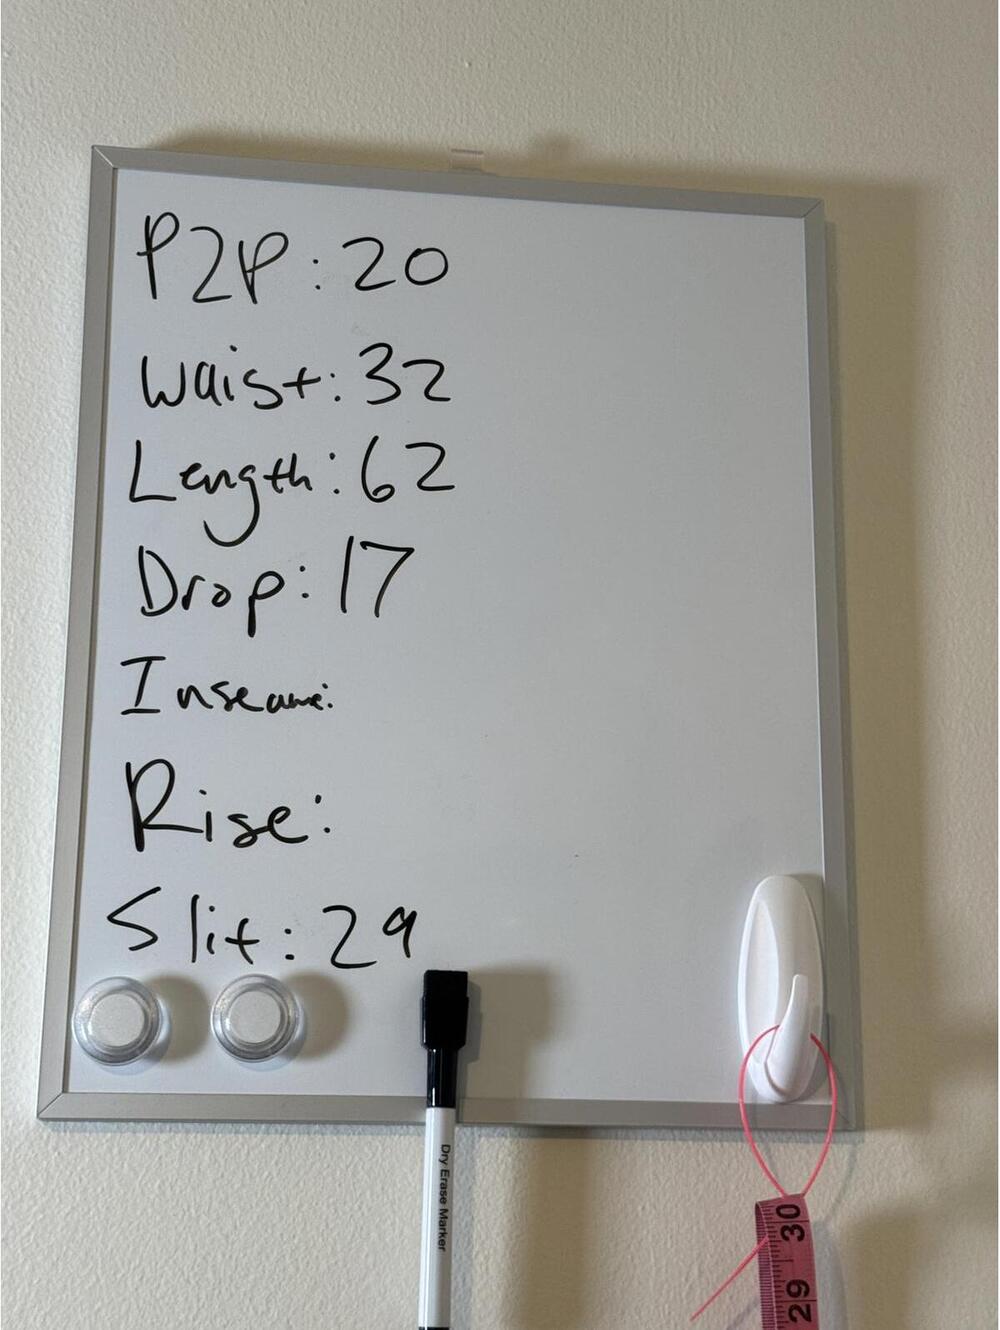 P2P: 20
Waist: 32
Length: 62
Drop: 17
Inseam:
Rise:
Slit: 29
Dry Erase Marker
30
29